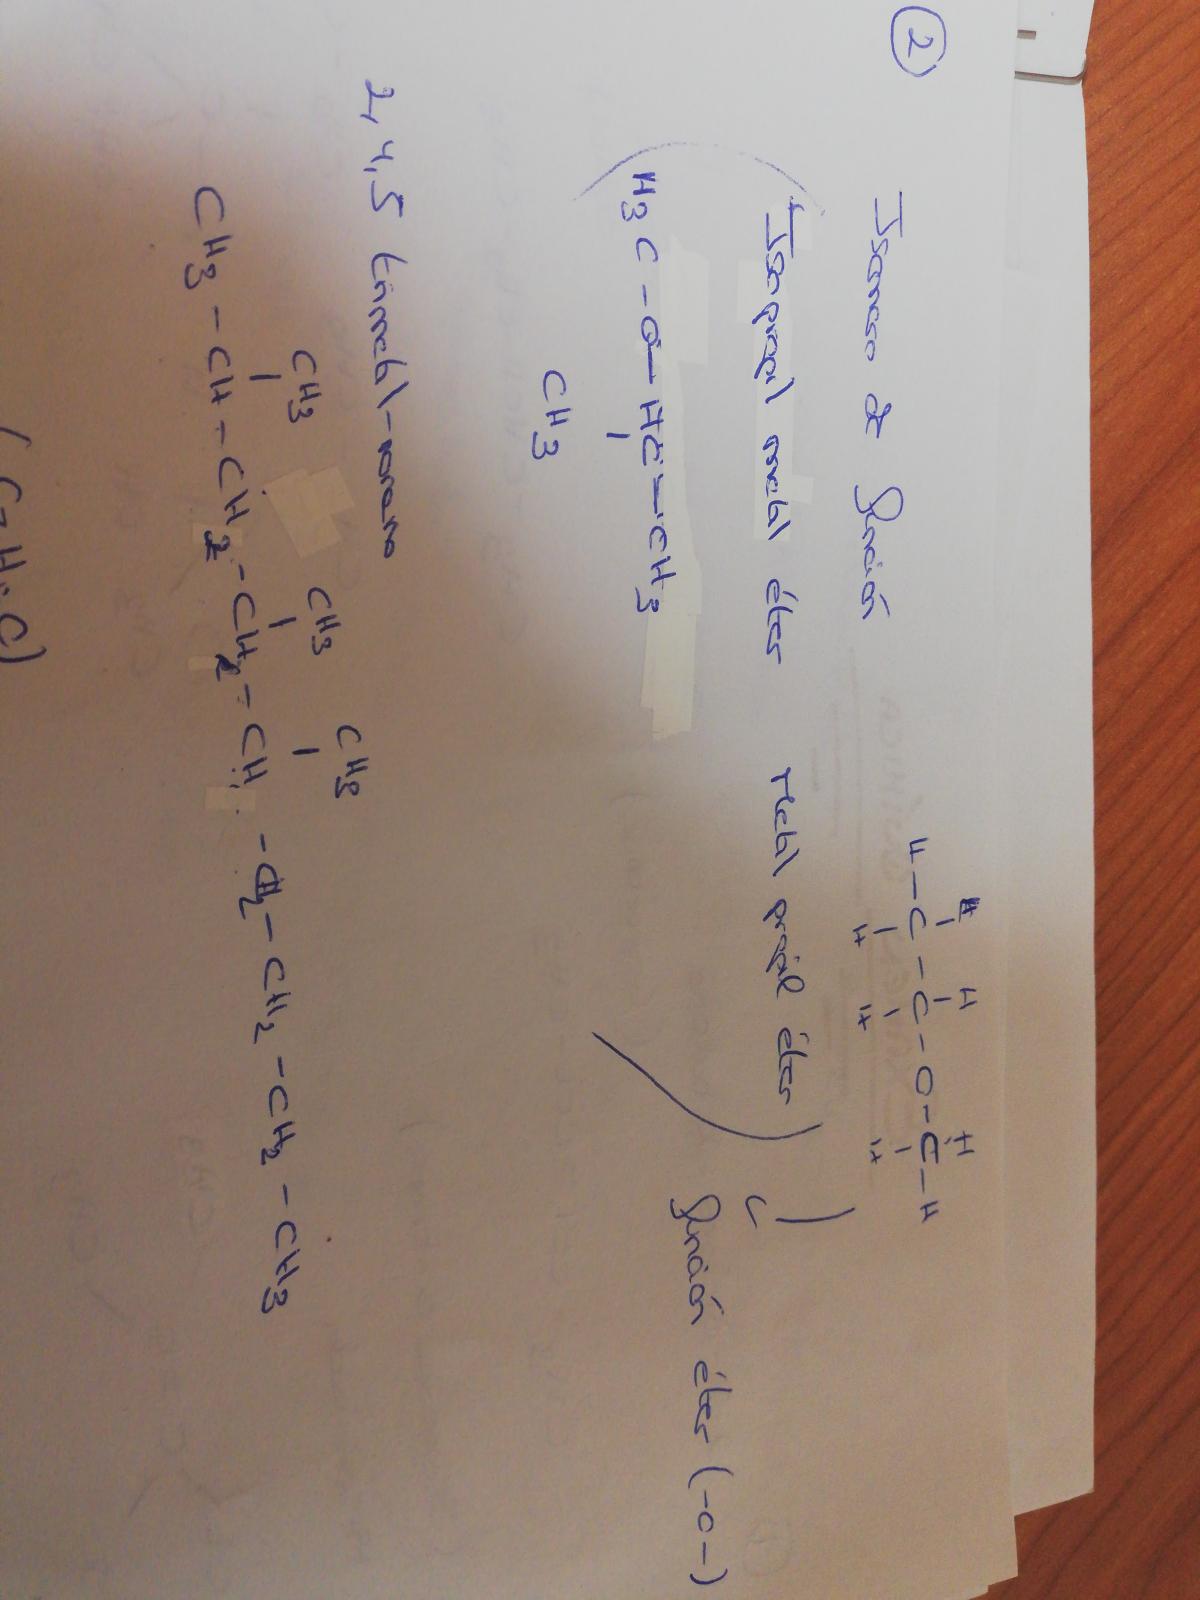 ②
Isomeso de función
Isopropil metil éter metil propil éter
H H H
H-C-C-O-C-H
H H H
H3C-O-HC-CH3
CH3
función éter (-O-)
2,4,5 trimetil-nonano
CH3 CH3 CH3
CH3-CH-CH2-CH2-CH-CH2-CH2-CH2-CH3